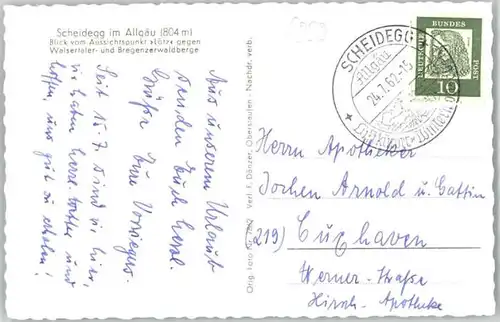 Scheidegg im Allgäu (804 m)
Blick vom Aussichtspunkt »Lötz« gegen
Walsertaler- und Bregenzerwaldberge
Aus unserem Urlaub
senden Euch herzl.
Grüße Eure
Seit 15.7. sind wir hier,
wir haben und
hoffen, uns gut zu erholen!
Orig. Foto Nr. Verl. F. Dänzer, Oberstaufen - Nachdr. verb.
SCHEIDEGG
Allgäu
24.7.62-15
DEUTSCHE
BUNDES
10
Herrn Apotheker
Jochen Arnold u. Gattin
(219) Cuxhaven
Werner-Straße
Hirsch-Apotheke